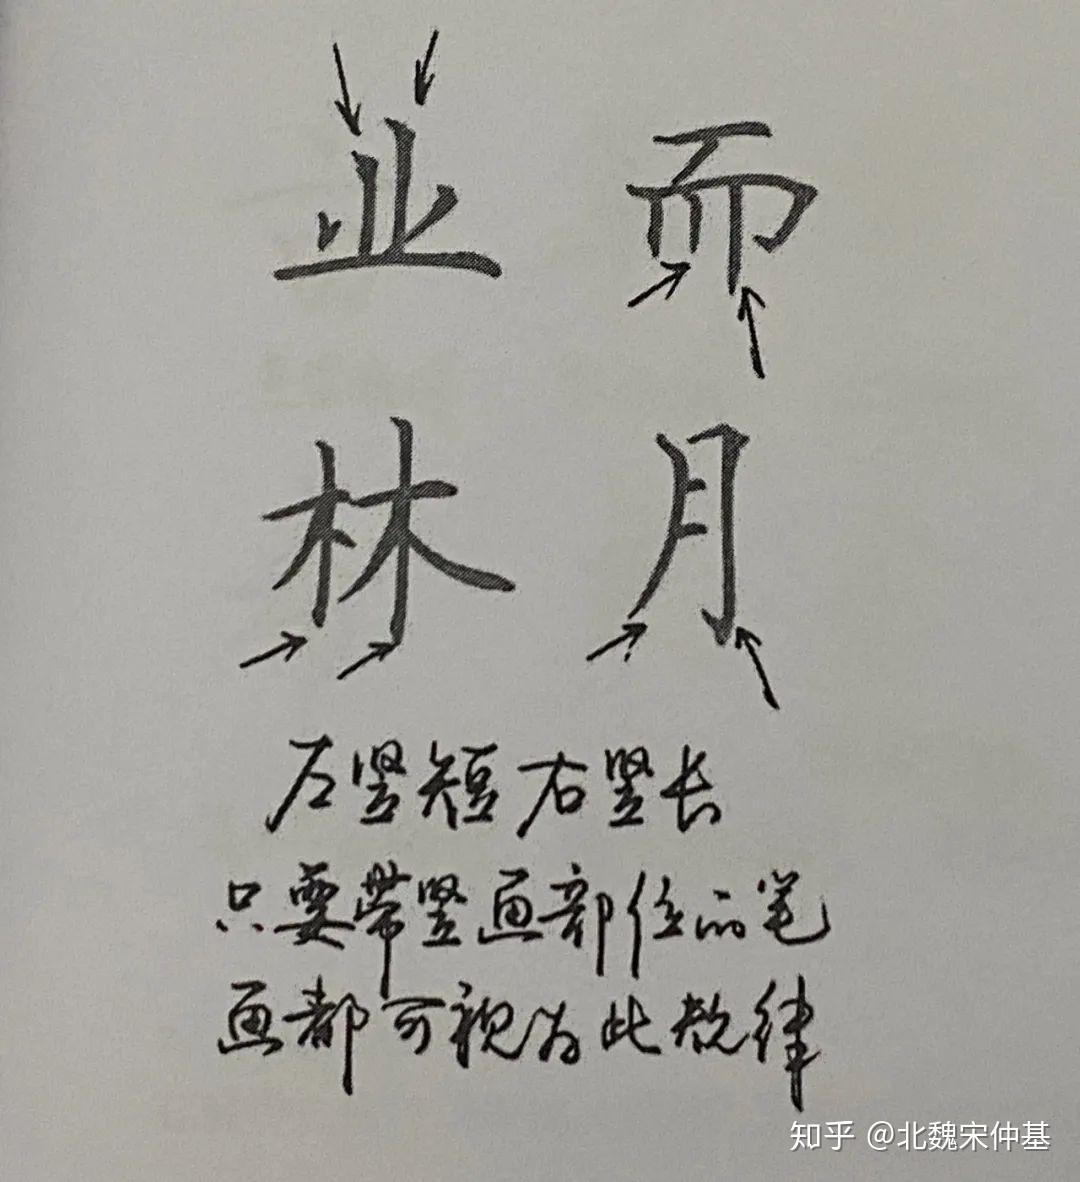 业 而
林 月
左竖短右竖长
只要带竖画部位的笔
画都可视为此规律
知乎 @北魏宋仲基